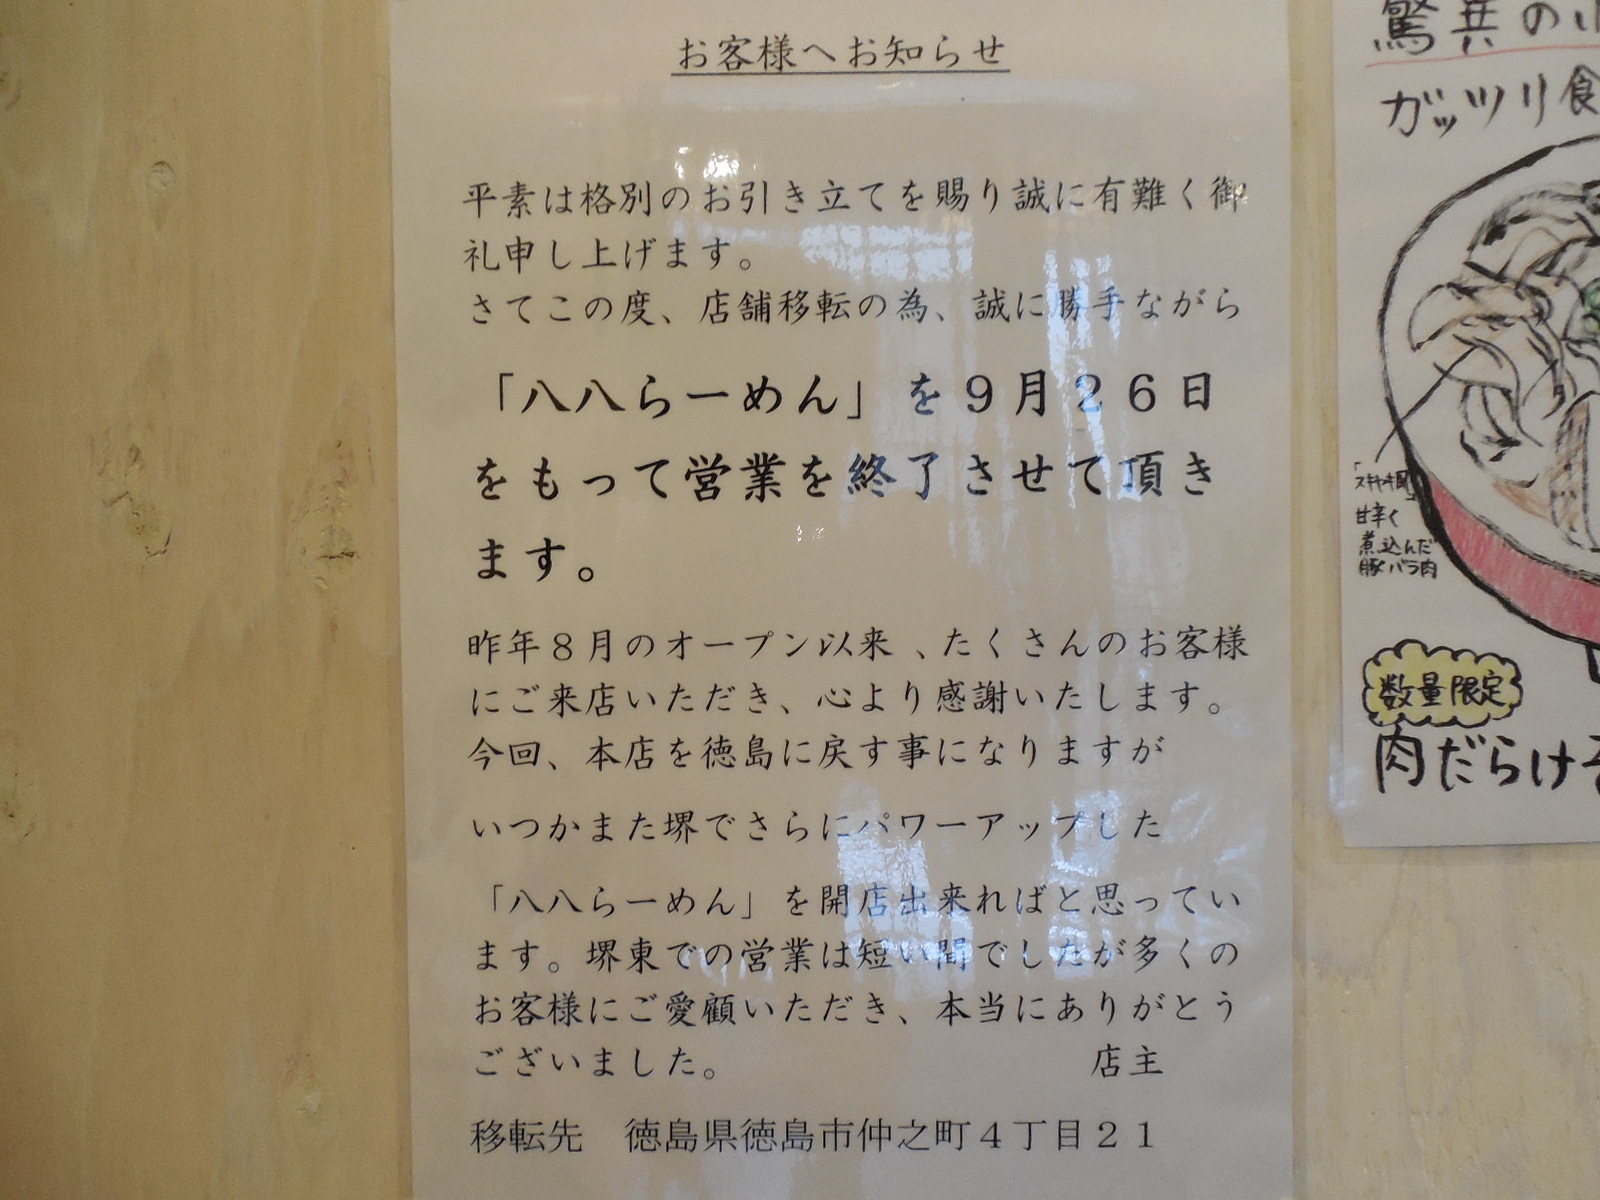 お客様へお知らせ
平素は格別のお引き立てを賜り誠に有難く御
礼申し上げます。
さてこの度、店舗移転の為、誠に勝手ながら
「八八らーめん」を９月２６日
をもって営業を終了させて頂き
ます。
昨年８月のオープン以来、たくさんのお客様
にご来店いただき、心より感謝いたします。
今回、本店を徳島に戻す事になりますが
いつかまた堺でさらにパワーアップした
「八八らーめん」を開店出来ればと思ってい
ます。堺東での営業は短い間でしたが多くの
お客様にご愛顧いただき、本当にありがとう
ございました。　店主
移転先　徳島県徳島市仲之町４丁目２１
驚異の
ガッツリ食
甘辛く
煮込んだ
豚バラ肉
数量限定
肉だらけ